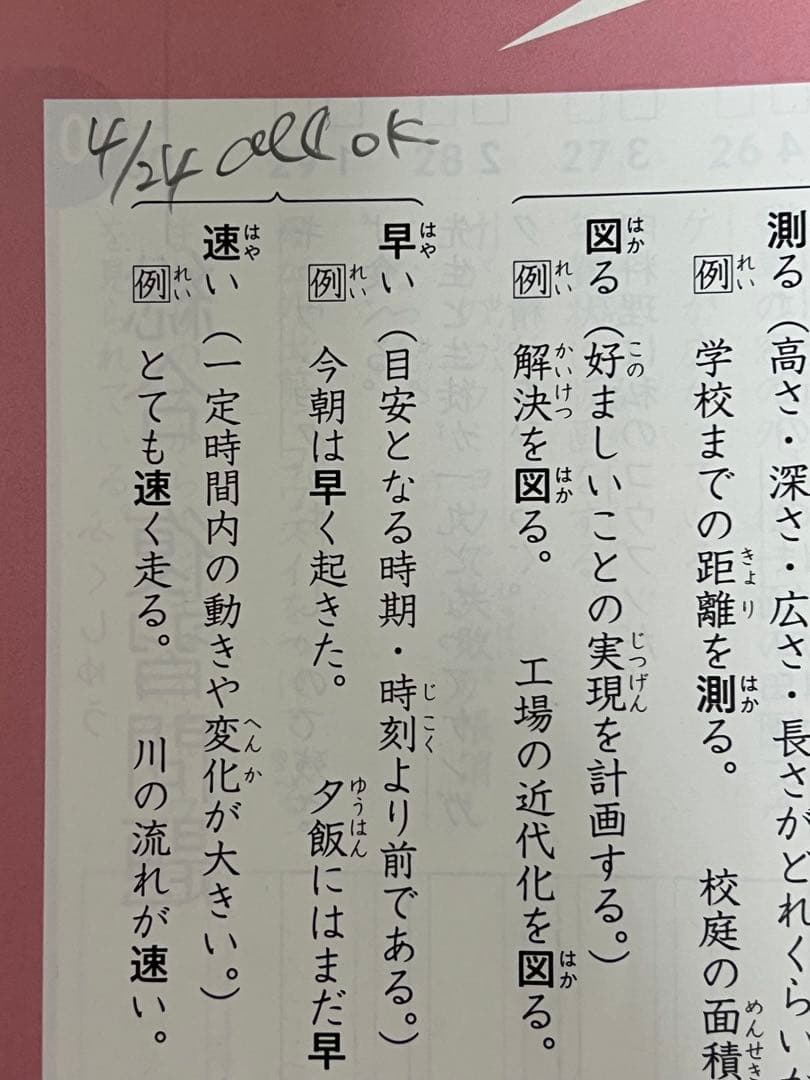 4/24 all OK
測る（高さ・深さ・広さ・長さがどれくらい
例 学校までの距離を測る。 校庭の面積
図る（好ましいことの実現を計画する。）
例 解決を図る。 工場の近代化を図る。
早い（目安となる時期・時刻より前である。）
例 今朝は早く起きた。 夕飯にはまだ早
速い（一定時間内の動きや変化が大きい。）
例 とても速く走る。 川の流れが速い。